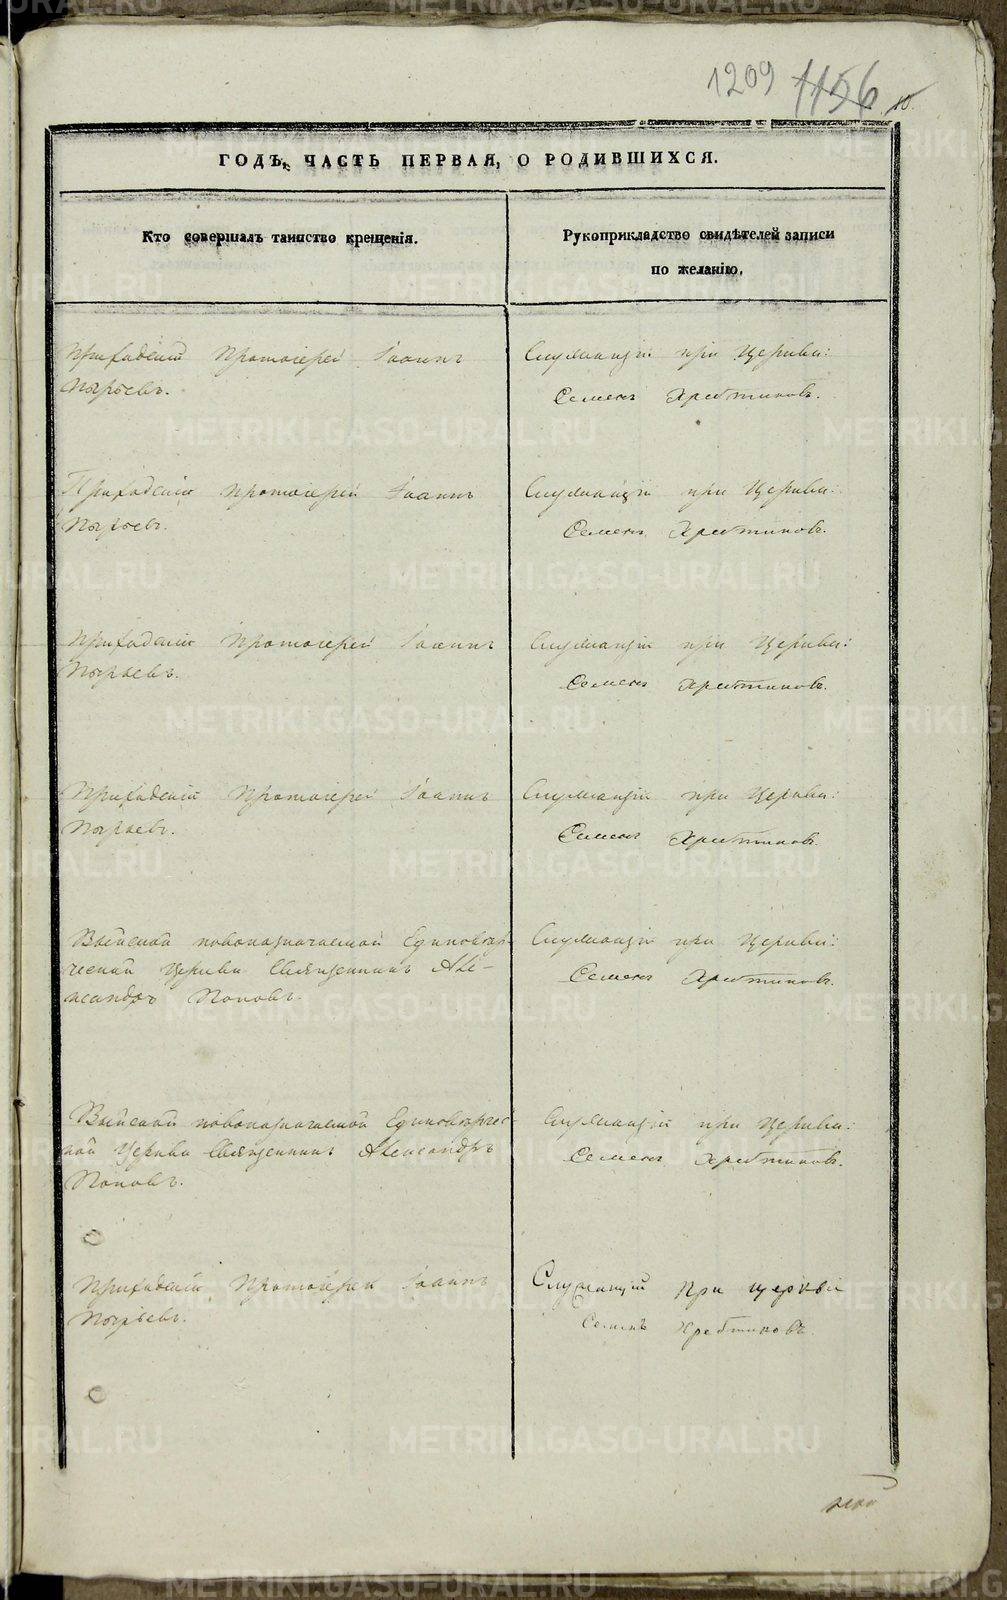 1209 1156 10.
ГОДЪ, ЧАСТЬ ПЕРВАЯ, О РОДИВШИХСЯ.
Кто совершалъ таинство крещенія.
Рукоприкладство свидѣтелей записи
по желанію.
Приходскій Протоіерей Іоаннъ
Пырьевъ.
Служащій при Церкви:
Семенъ Хребтиковъ.
Приходскій протоіерей Іоаннъ
Пырьевъ.
Служащій при Церкви:
Семенъ Хребтиковъ.
Приходскій Протоіерей Іоаннъ
Пырьевъ.
Служащій при Церкви:
Семенъ Хребтиковъ.
Приходскій Протоіерей Іоаннъ
Пырьевъ.
Служащій при Церкви:
Семенъ Хребтиковъ.
Выйской новоназначаемой Единовѣр-
ческой Церкви Священникъ Але-
ксандръ Поповъ.
Служащій при Церкви:
Семенъ Хребтиковъ.
Выйской новоназначаемой Единовѣрчес-
кой Церкви Священникъ Александръ
Поповъ.
Служащій при Церкви:
Семенъ Хребтиковъ.
Приходскій Протоіерей Іоаннъ
Пырьевъ.
Служащій при церкви
Семенъ Хребтиковъ
METRIKI.GASO-URAL.RU